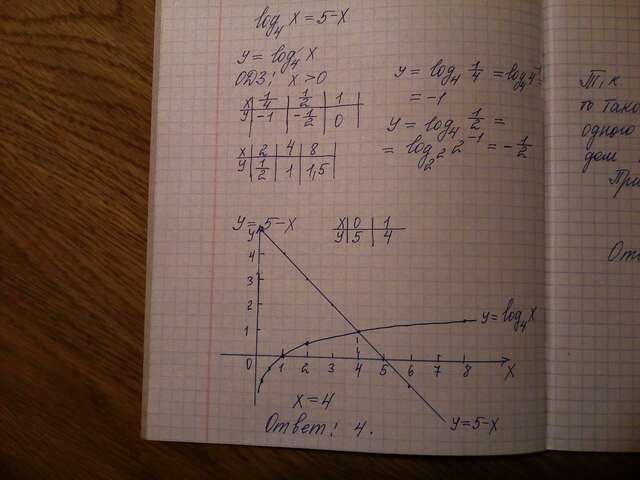 log₄ x = 5-x
y = log₄ x
ОДЗ: x > 0
x 1/4 1/2 1
y -1 -1/2 0
x 2 4 8
y 1/2 1 1,5
y = log₄ 1/4 = log₄ 4⁻¹
= -1
y = log₄ 1/2 =
= log₂² 2⁻¹ = -1/2
y = 5-x
x 0 1
y 5 4
y
4
3
2
1
0 1 2 3 4 5 6 7 8 x
y = log₄ x
y = 5-x
x = 4
Ответ: 4.
Т, к.
то тако
одного
дом
При
Отв